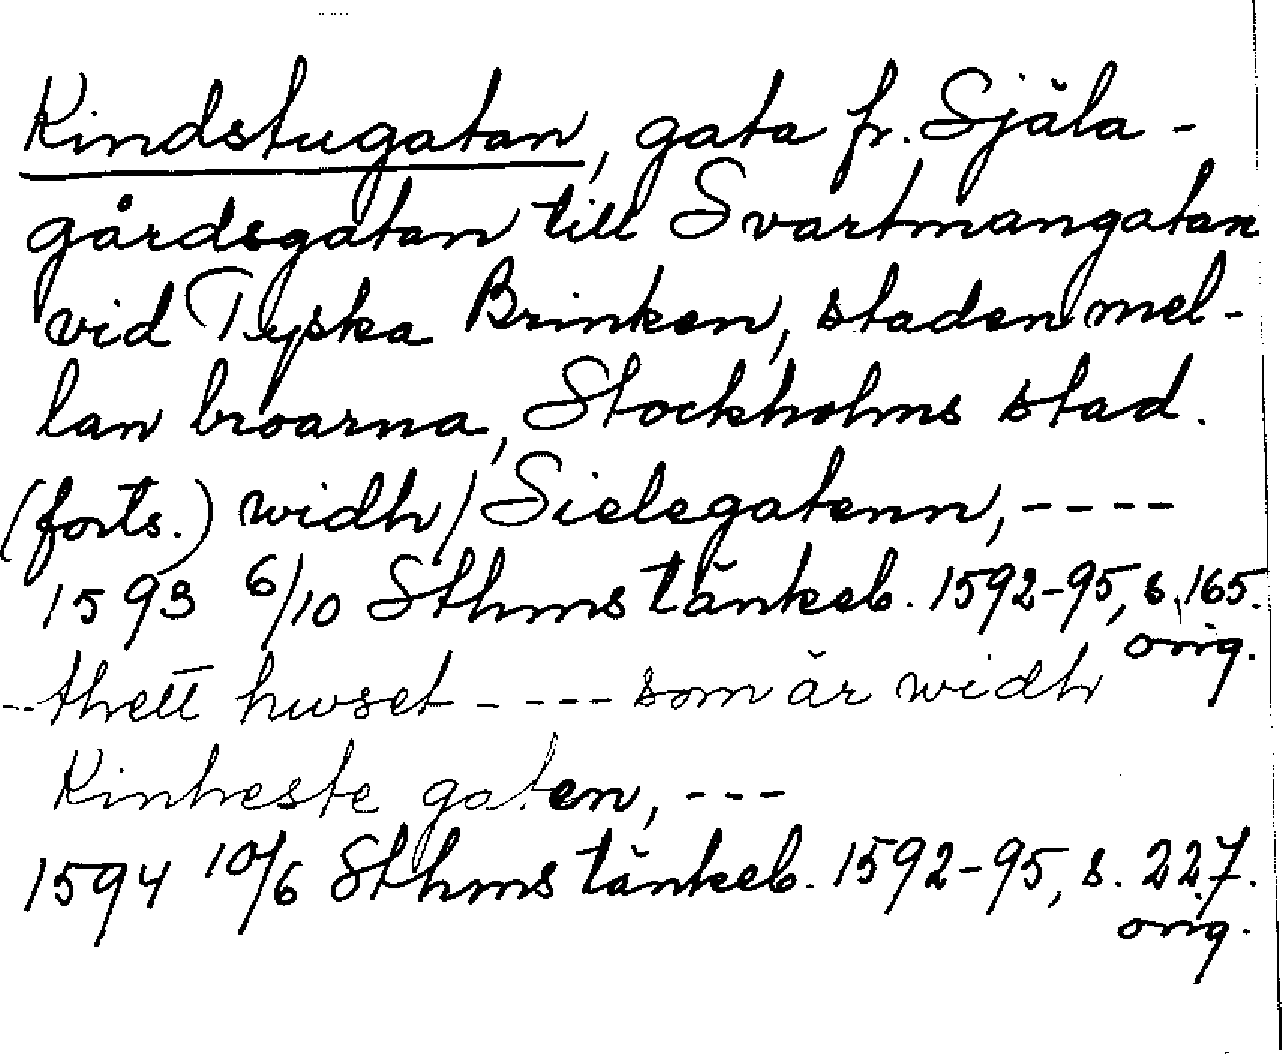 Kindstugatan, gata fr. Själa-
gårdsgatan till Svartmangatan
vid Tyska Brinken, staden mel-
lan broarna, Stockholms stad.
(forts.) widh / Sielegatenn, ----
1593 6/10 Sthms tänkeb. 1592-95, s. 165.
orig.
-- thett huset ---- som är widh
Kinheste gaten, ---
1594 10/6 Sthms tänkeb. 1592-95, s. 227.
orig.